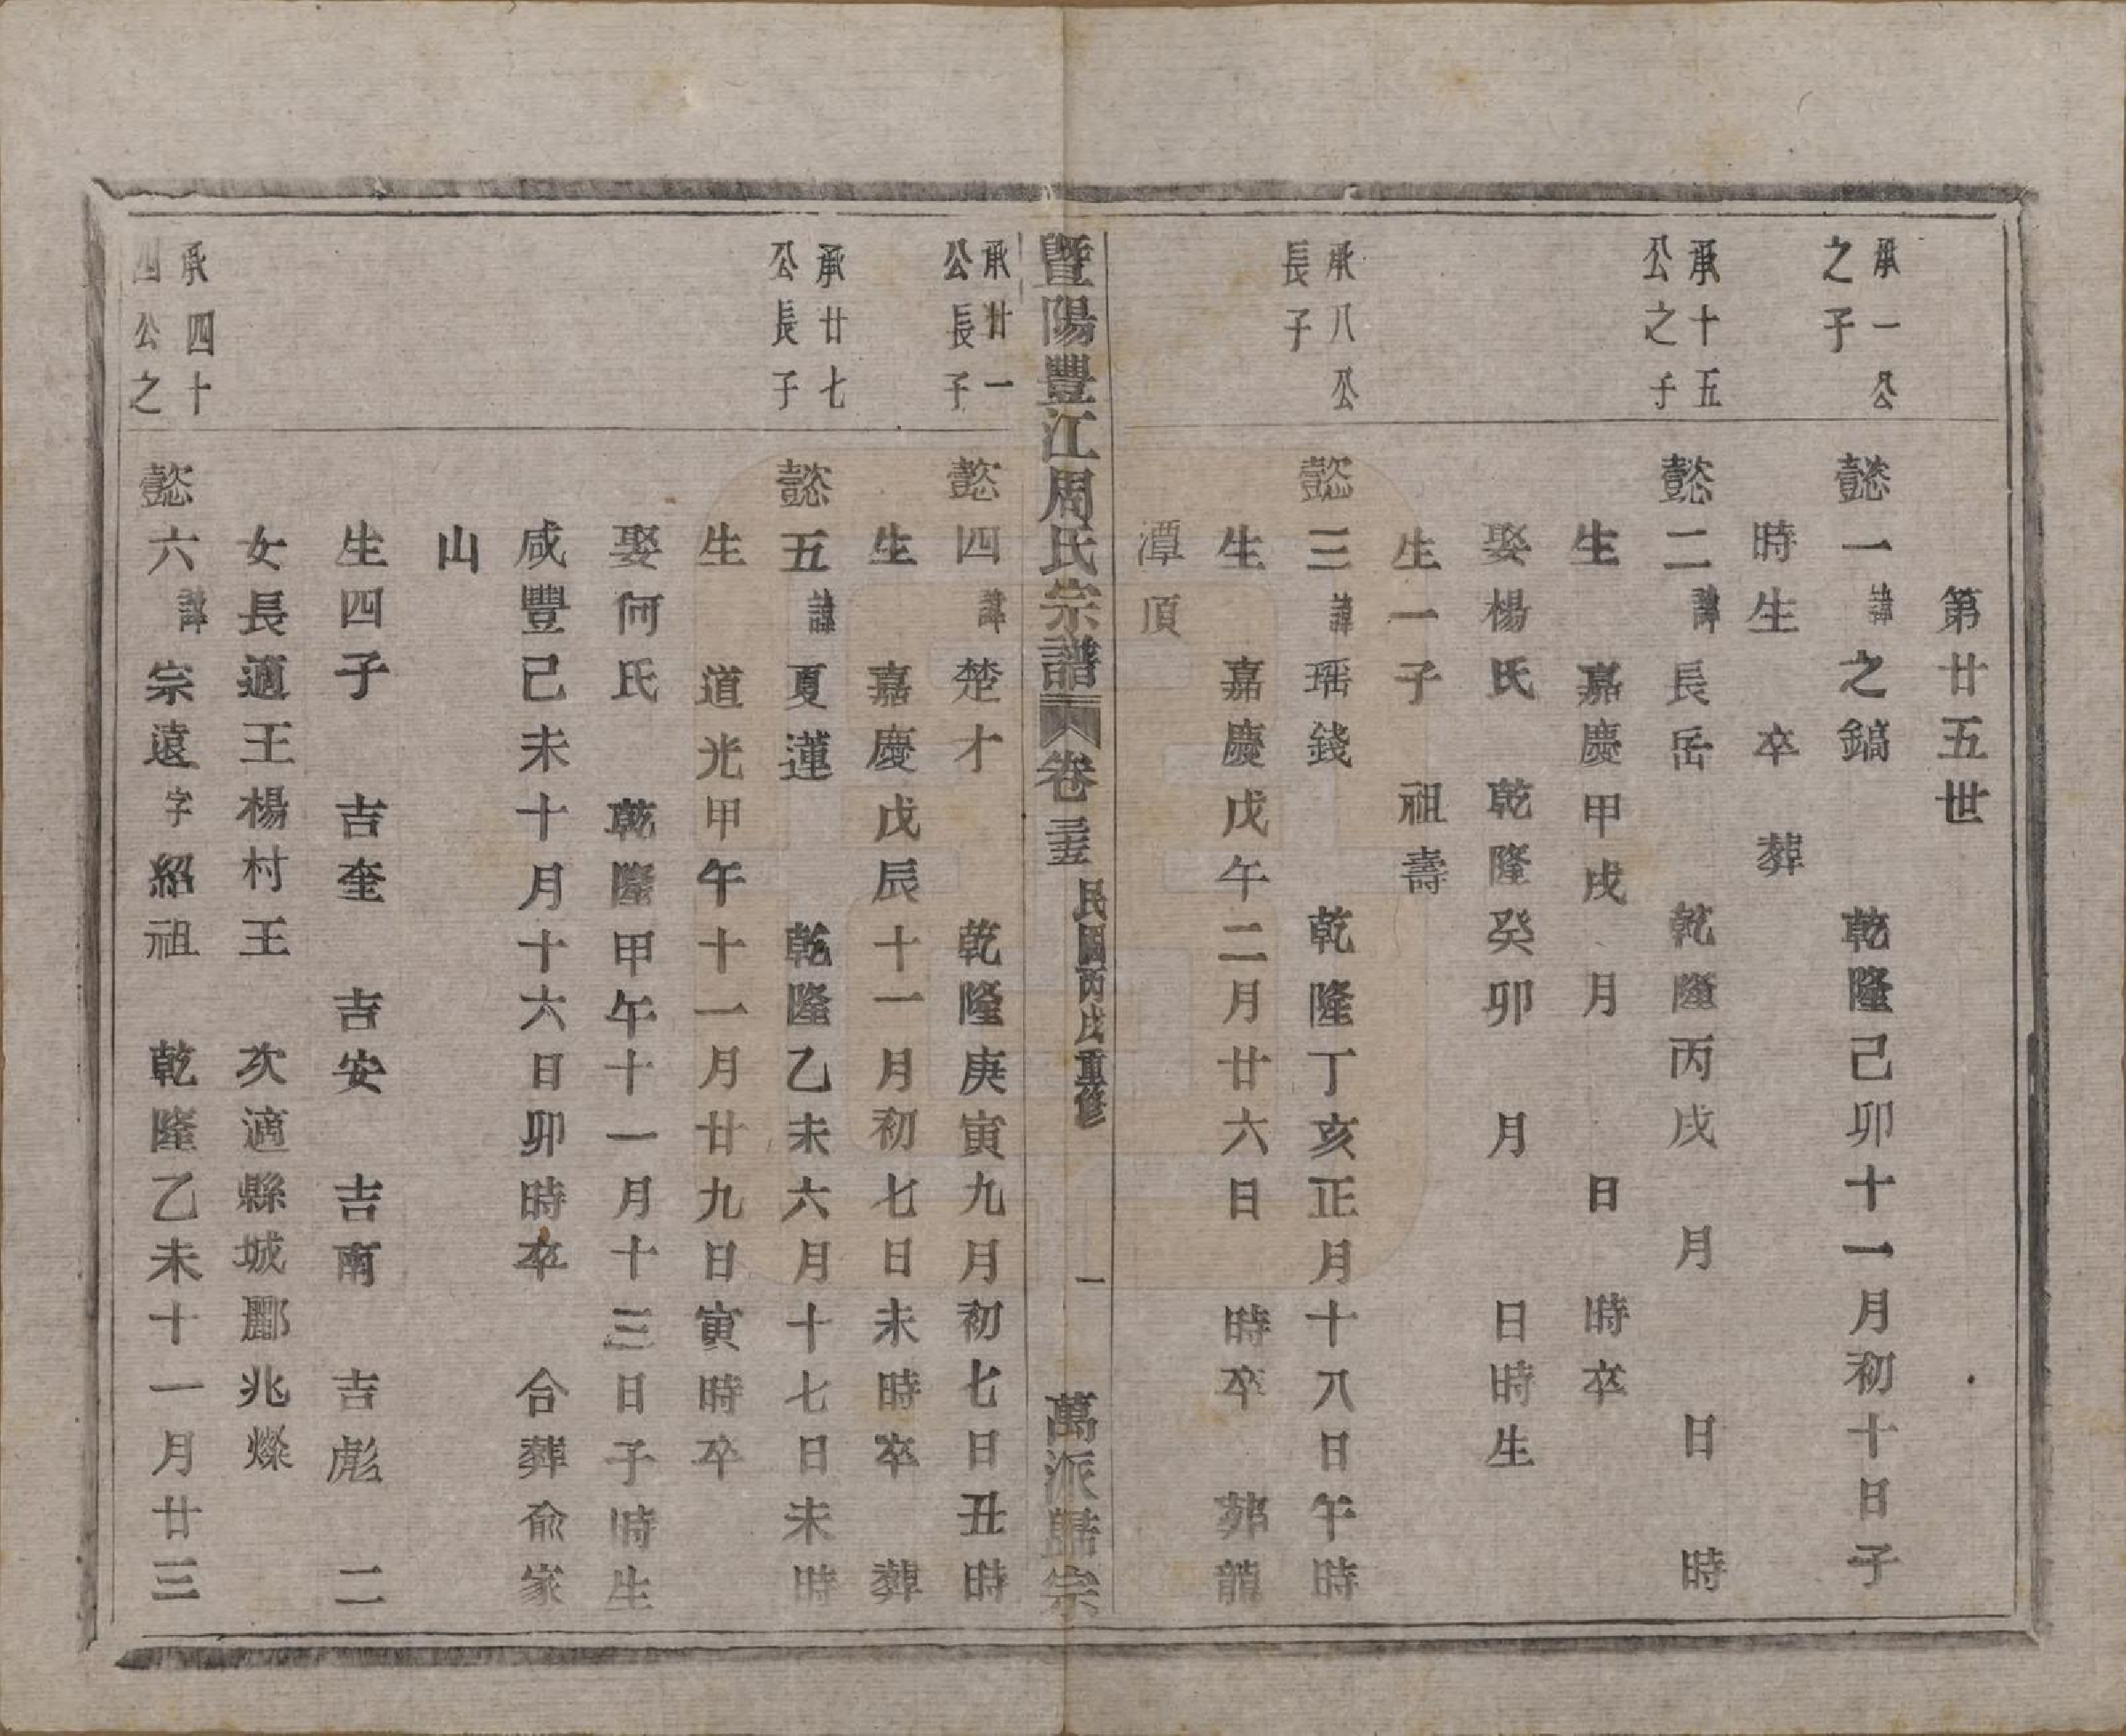 第廿五世
承一公
之子
懿一諱之鎬 乾隆己卯十一月初十日子
時生 卒 葬
承十五
公之子
懿二諱長岳 乾隆丙戌 月 日 時
生 嘉慶甲戌 月 日 時卒
娶楊氏 乾隆癸卯 月 日時生
生一子 祖壽
承八公
長子
懿三諱瑶錢 乾隆丁亥正月十八日午時
生 嘉慶戊午二月廿六日 時卒 葬龍
潭頂
暨陽豐江周氏宗譜 卷 民國丙戌重修 一 萬派歸宗
承廿一
公長子
懿四諱楚才 乾隆庚寅九月初七日丑時
生 嘉慶戊辰十一月初七日未時卒 葬
承廿七
公長子
懿五諱夏蓮 乾隆乙未六月十七日未時
生 道光甲午十一月廿九日寅時卒
娶何氏 乾隆甲午十一月十三日子時生
咸豐己未十月十六日卯時卒 合葬俞家
山
生四子 吉奎 吉安 吉南 吉彪 二
女長適王楊村王 次適縣城酈兆燦
承四十
四公之
懿六諱宗遠字紹祖 乾隆乙未十一月廿三